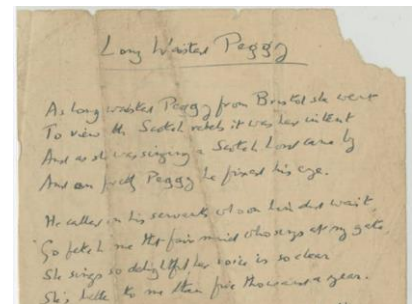 Long Waisted Peggy
As long waisted Peggy from Bristol she went
To view the Scotch rebels it was her intent
And as she was singing a Scotch Lord came by
And on pretty Peggy he fixed his eye.
He called in his servants who on him did wait
Go fetch me that fair maid who sings at my gate
She sings so delightful her voice is so clear
She's better to me than five thousand a year.